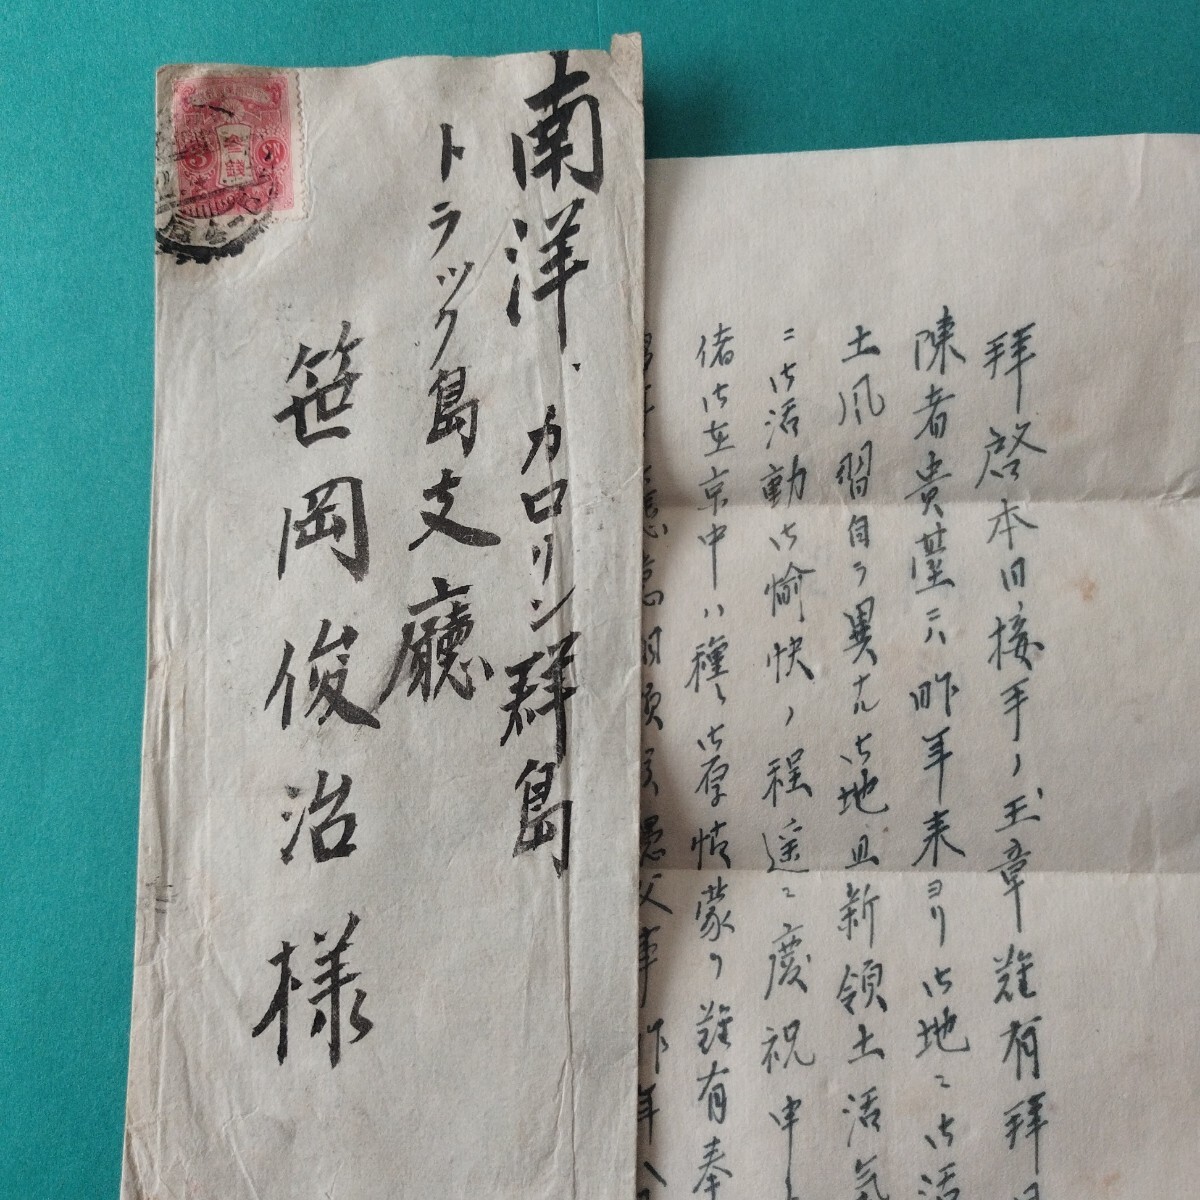 南洋、カロリン群島
トラック島支廳
笹岡俊治様
参銭
拝啓本日接手ノ玉章難有拝
陳者貴臺ニハ昨年来ヨリ御地ニ御活
土風習自ラ異ナル御地且新領土活気
ニ御活動御愉快ノ程遥ニ慶祝申
偖御在京中ハ種々御厚情蒙リ難有奉
愚父事昨年八